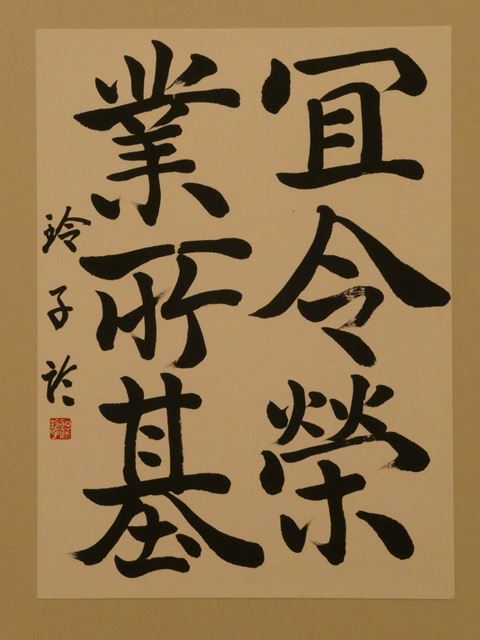 宜令榮
業所基
玲子於